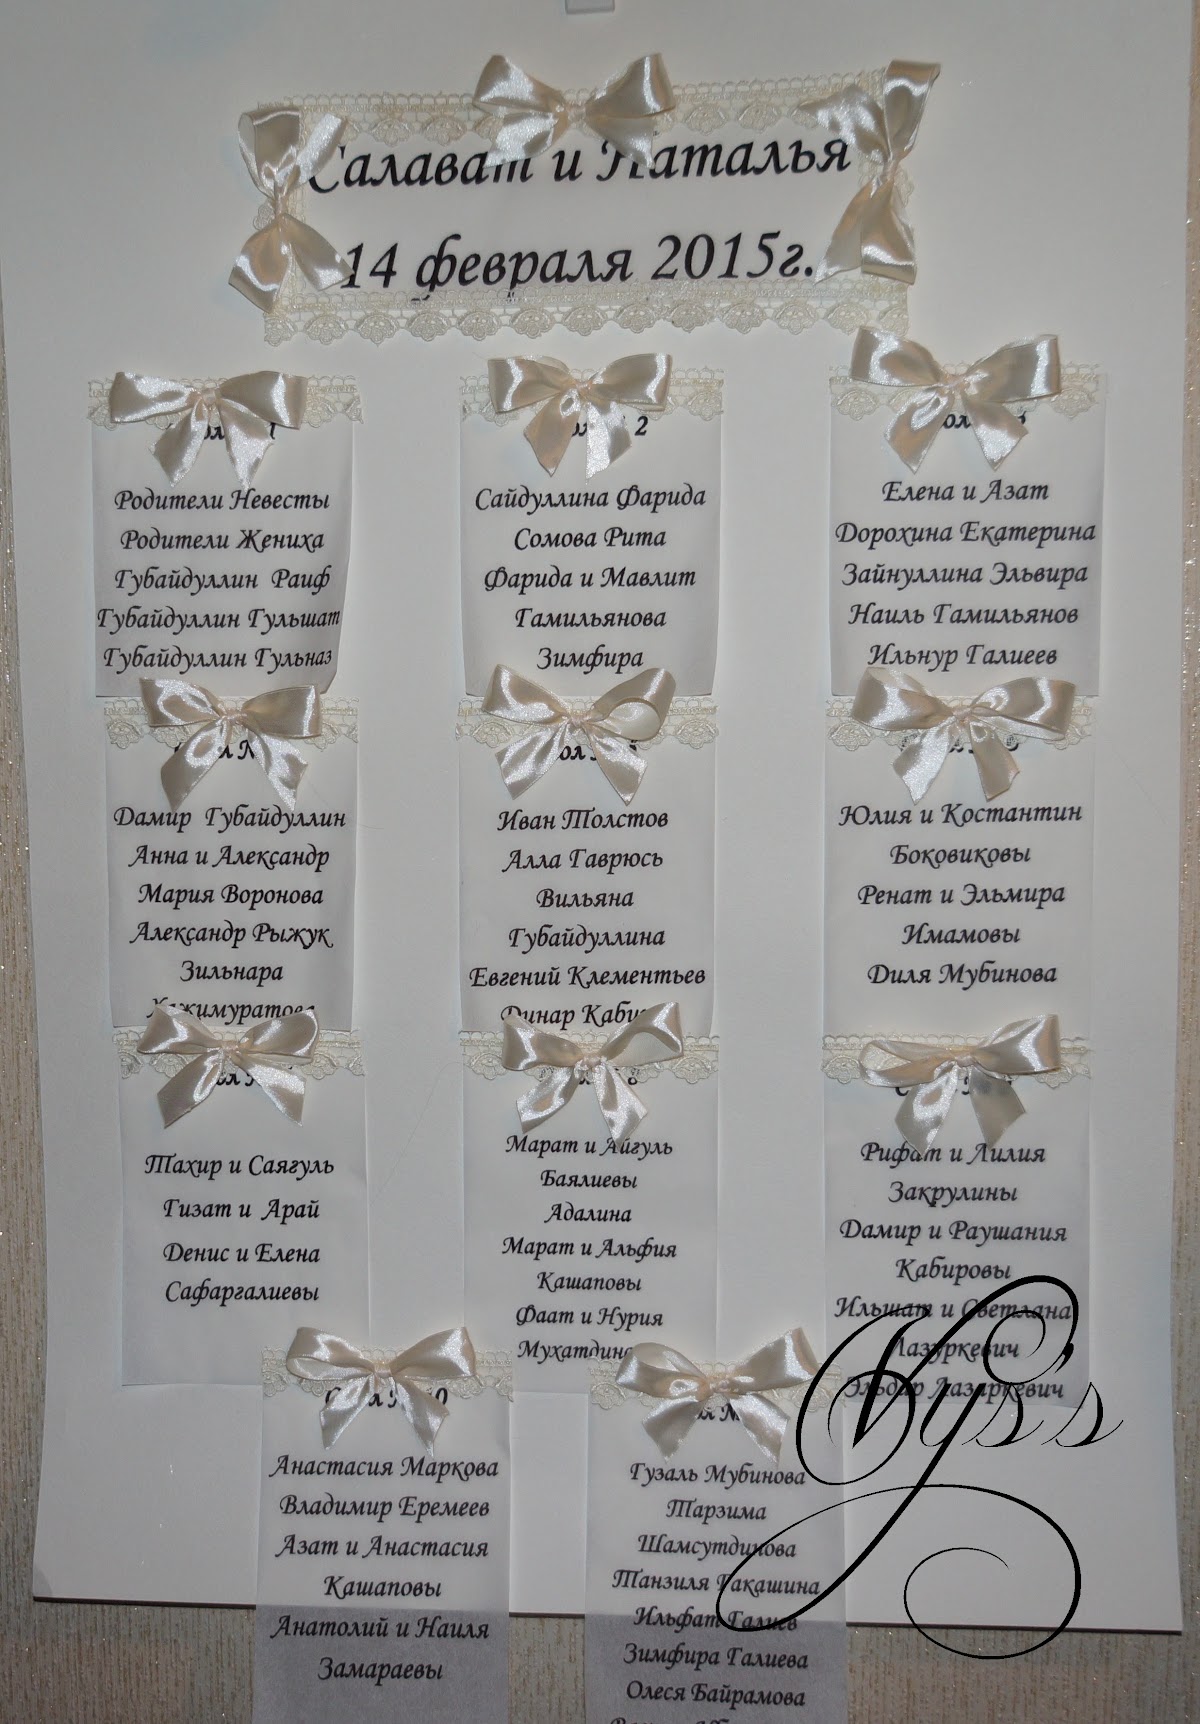 Салават и Наталья
14 февраля 2015г.
Родители Невесты
Родители Жениха
Губайдуллин Раиф
Губайдуллин Гульшат
Губайдуллин Гульназ
2
Сайдуллина Фарида
Сомова Рита
Фарида и Мавлит
Гамильянова
Зимфира
Елена и Азат
Дорохина Екатерина
Зайнуллина Эльвира
Наиль Гамильянов
Ильнур Галиеев
Дамир Губайдуллин
Анна и Александр
Мария Воронова
Александр Рыжук
Зильнара
Иван Толстов
Алла Гаврюсь
Вильяна
Губайдуллина
Евгений Клементьев
Динар
Юлия и Костантин
Боковиковы
Ренат и Эльмира
Имамовы
Диля Мубинова
Тахир и Саягуль
Гизат и Арай
Денис и Елена
Сафаргалиевы
8
Марат и Айгуль
Баялиевы
Адалина
Марат и Альфия
Кашаповы
Фаат и Нурия
Рифат и Лилия
Закрулины
Дамир и Раушания
Кабировы
Ильшат и Светлана
Лазуркевич
Эльдар Лазаркевич
Анастасия Маркова
Владимир Еремеев
Азат и Анастасия
Кашаповы
Анатолий и Наиля
Замараевы
Гузаль Мубинова
Тарзима
Шамсутдинова
Танзиля Такашина
Ильфат Галиев
Зимфира Галиева
Олеся Байрамова